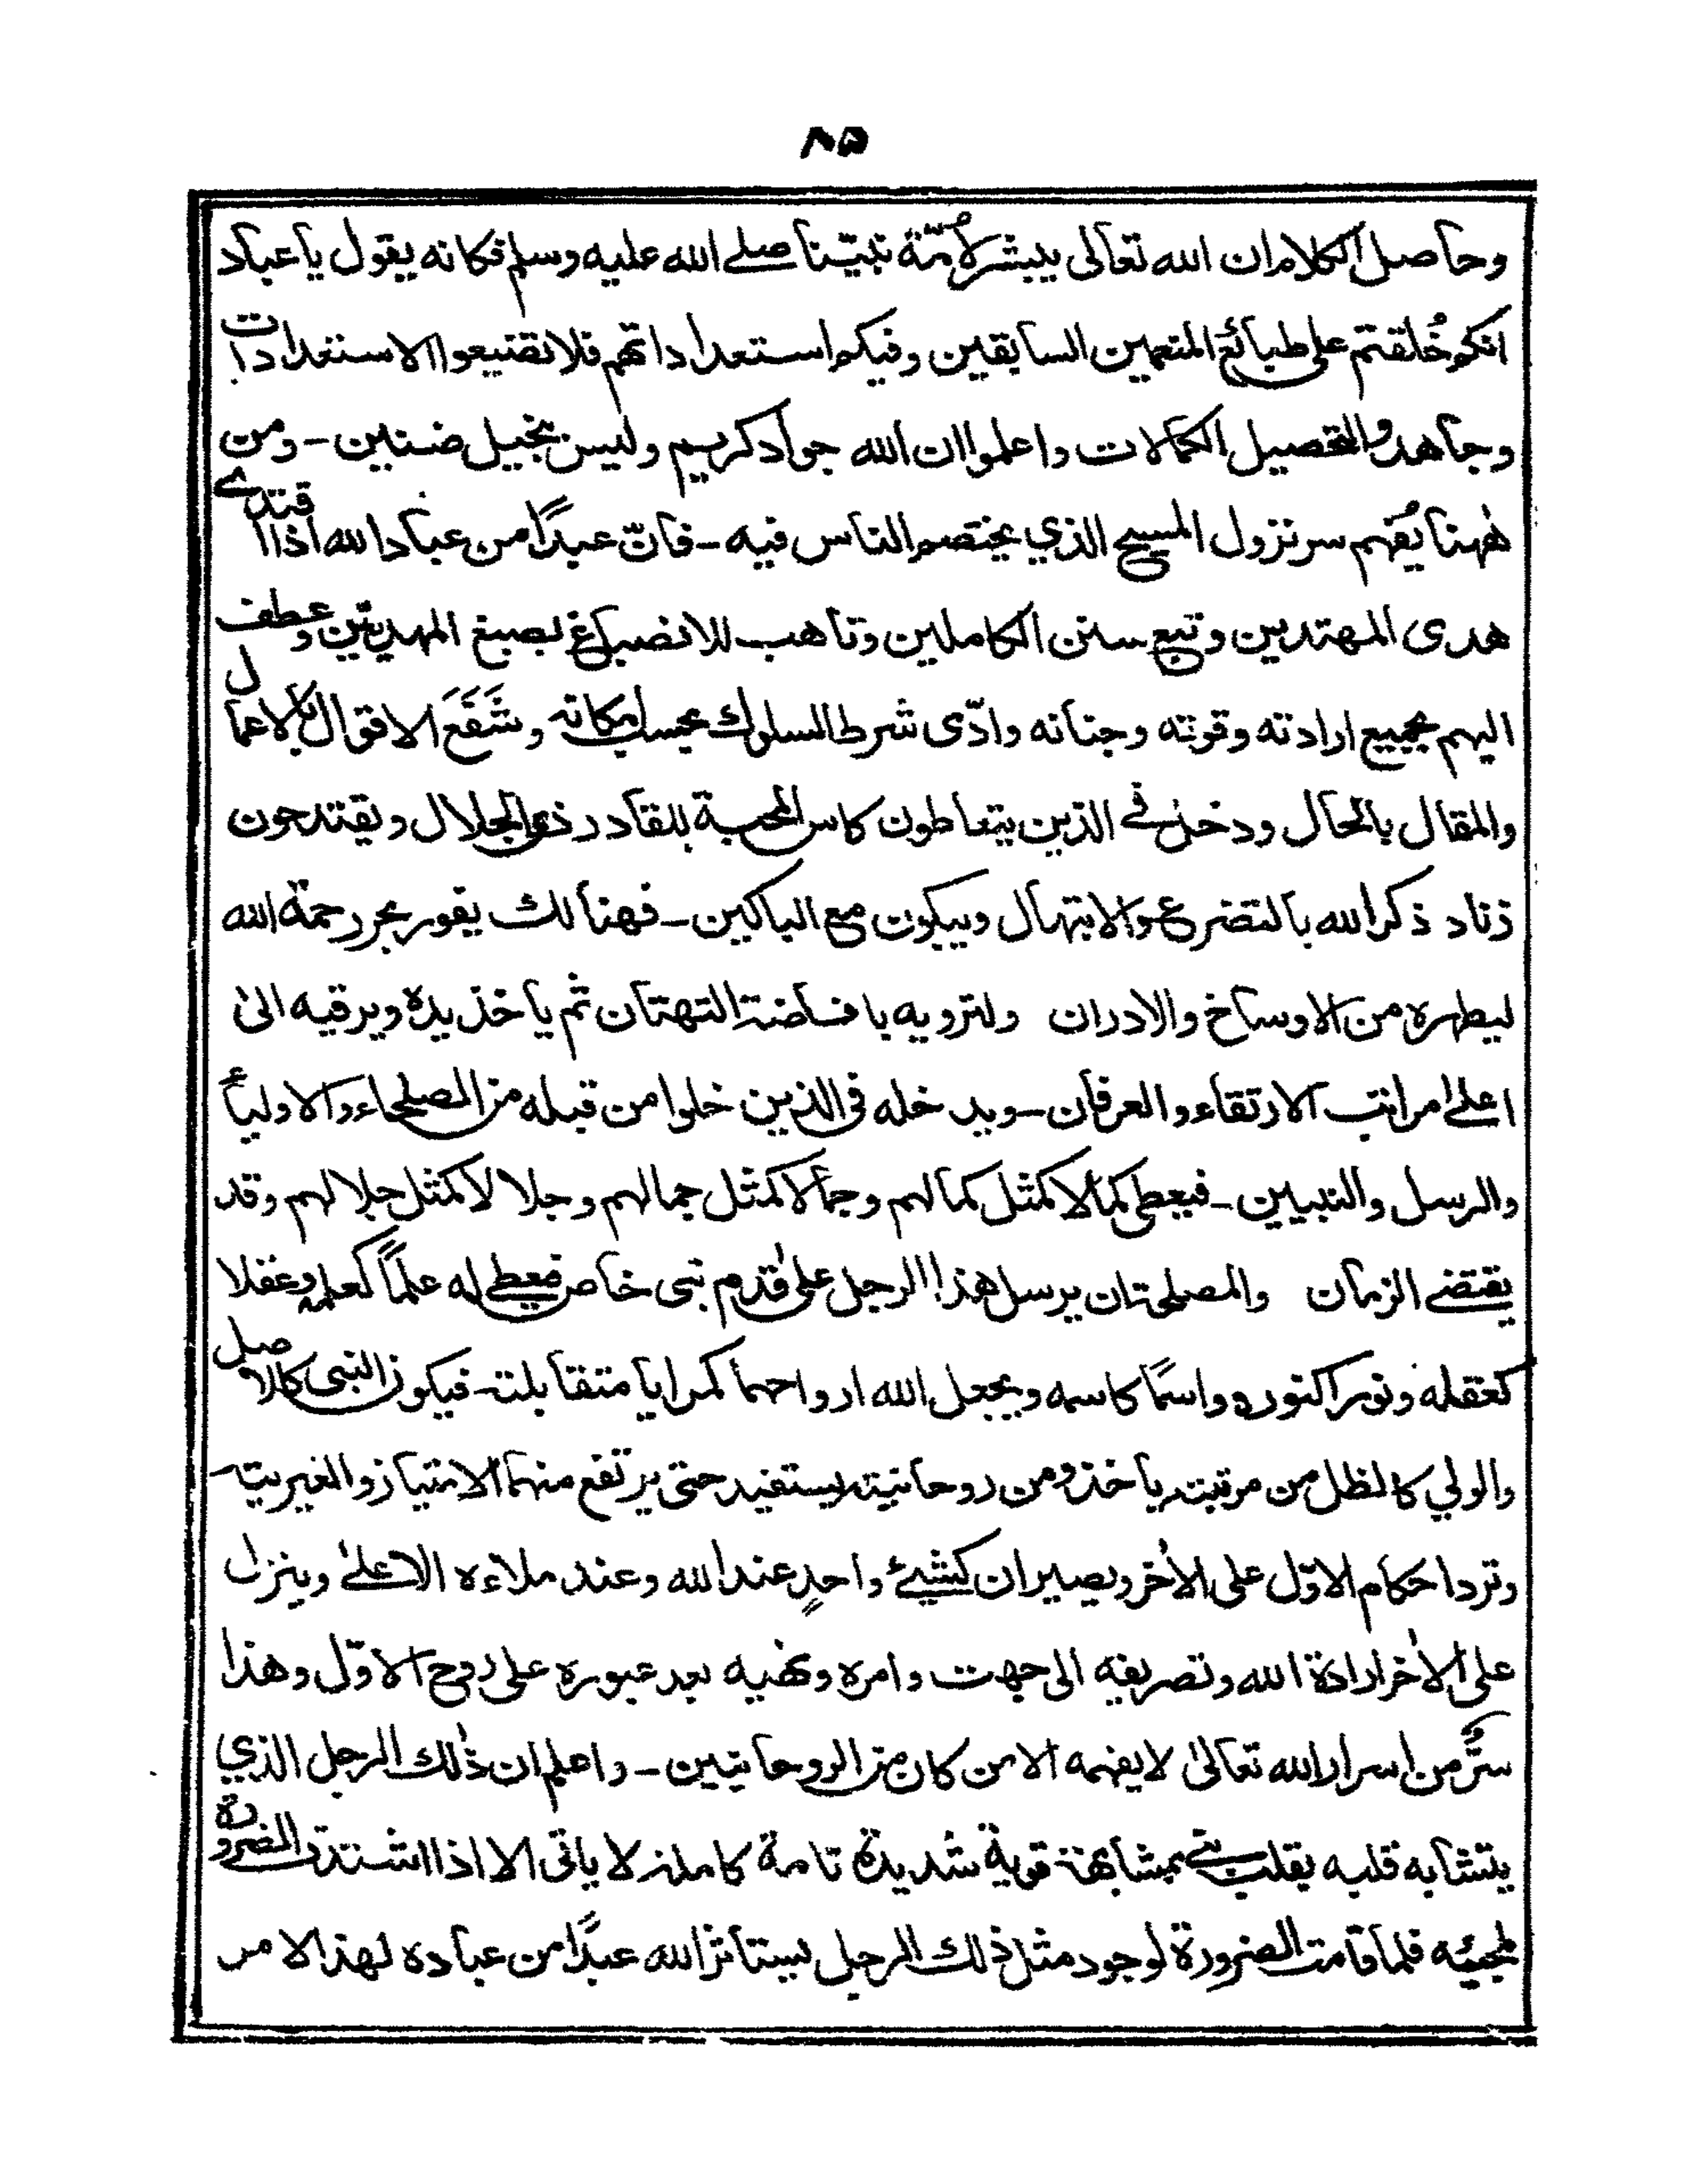 ٨٥
وحاصل الكلام ان الله تعالى يبشر لأمّة نبيّنا صلے الله عليه وسلم فكانه يقول يا عباد
انكم خُلقتم على طبائع المنعمين السابقين وفيكم استعداداتهم فلا تضيعوا الاستعدادات
وجاهدوا لتحصيل الكمالات واعلموا ان الله جواد كريم وليس ببخيل ضنين ـ ومن
هٰهنا يُفهم سر نزول المسيح الذي يختصم الناس فيه ـ فانّ عبدًا من عباد الله اذا اقتدے
هدى المهتدين وتبع سنن الكاملين وتاهب للانصباغ بصبغ المهديّين وعطف
اليهم بجميع ارادته وقوته وجنانه وادّى شرط السلوك بحسب امكانه وشَفَعَ الاقوال بالاعمال
والمقال بالحال ودخل فے الذين يتعاطون كاس المحبة للقادر ذى الجلال ويقتدحون
زناد ذكر الله بالتضرع والابتهال ويبكون مع الباكين ـ فهنالك يفور بحر رحمة الله
ليطهره من الاوساخ والادران ولترويه بافاضة التهتان ثم ياخذ يده ويرقيه الىٰ
اعلےٰ مراتب الارتقاء والعرفان ـ ويدخله فى الذين خلوا من قبله من الصلحاء والاولياء
والرسل والنبيين ـ فيعطى كمالا كمثل كمالهم وجمالا كمثل جمالهم وجلالا كمثل جلالهم وقد
يقتضے الزمان والمصلحة ان يرسل هذا الرجل على قدم نبى خاص فيعطے له علمًا كعلمه وعقلا
كعقله ونورا كنوره واسمًا كاسمه ويجعل الله ارواحهما كمرايا متقابلة ـ فيكون النبى كالاصل
والولي كالظل من مرتبته ياخذ ومن روحانيته يستفيد حتى يرتفع منهما الامتياز والغيرية
وترد احكام الاوّل على الأخر ويصيران كشيئ واحدٍ عند الله وعند ملاءه الاعلےٰ وينزل
على الأخر ارادة الله وتصريفه الى جهت وامره ونهيه بعد عبوره على روح الاوّل وهذا
سرٌّ من اسرار الله تعالىٰ لا يفهمه الا من كان من الروحانيين ـ واعلم ان ذٰلك الرجل الذي
يتشابه قلبه بقلب نبے بمشابهة قوية شديدة تامة كاملة لا ياتى الا اذا اشتدت الضرورة
لمجيئه فلما قامت الضرورة لوجود مثل ذلك الرجل يستاثر الله عبدًا من عباده لهذا الامر